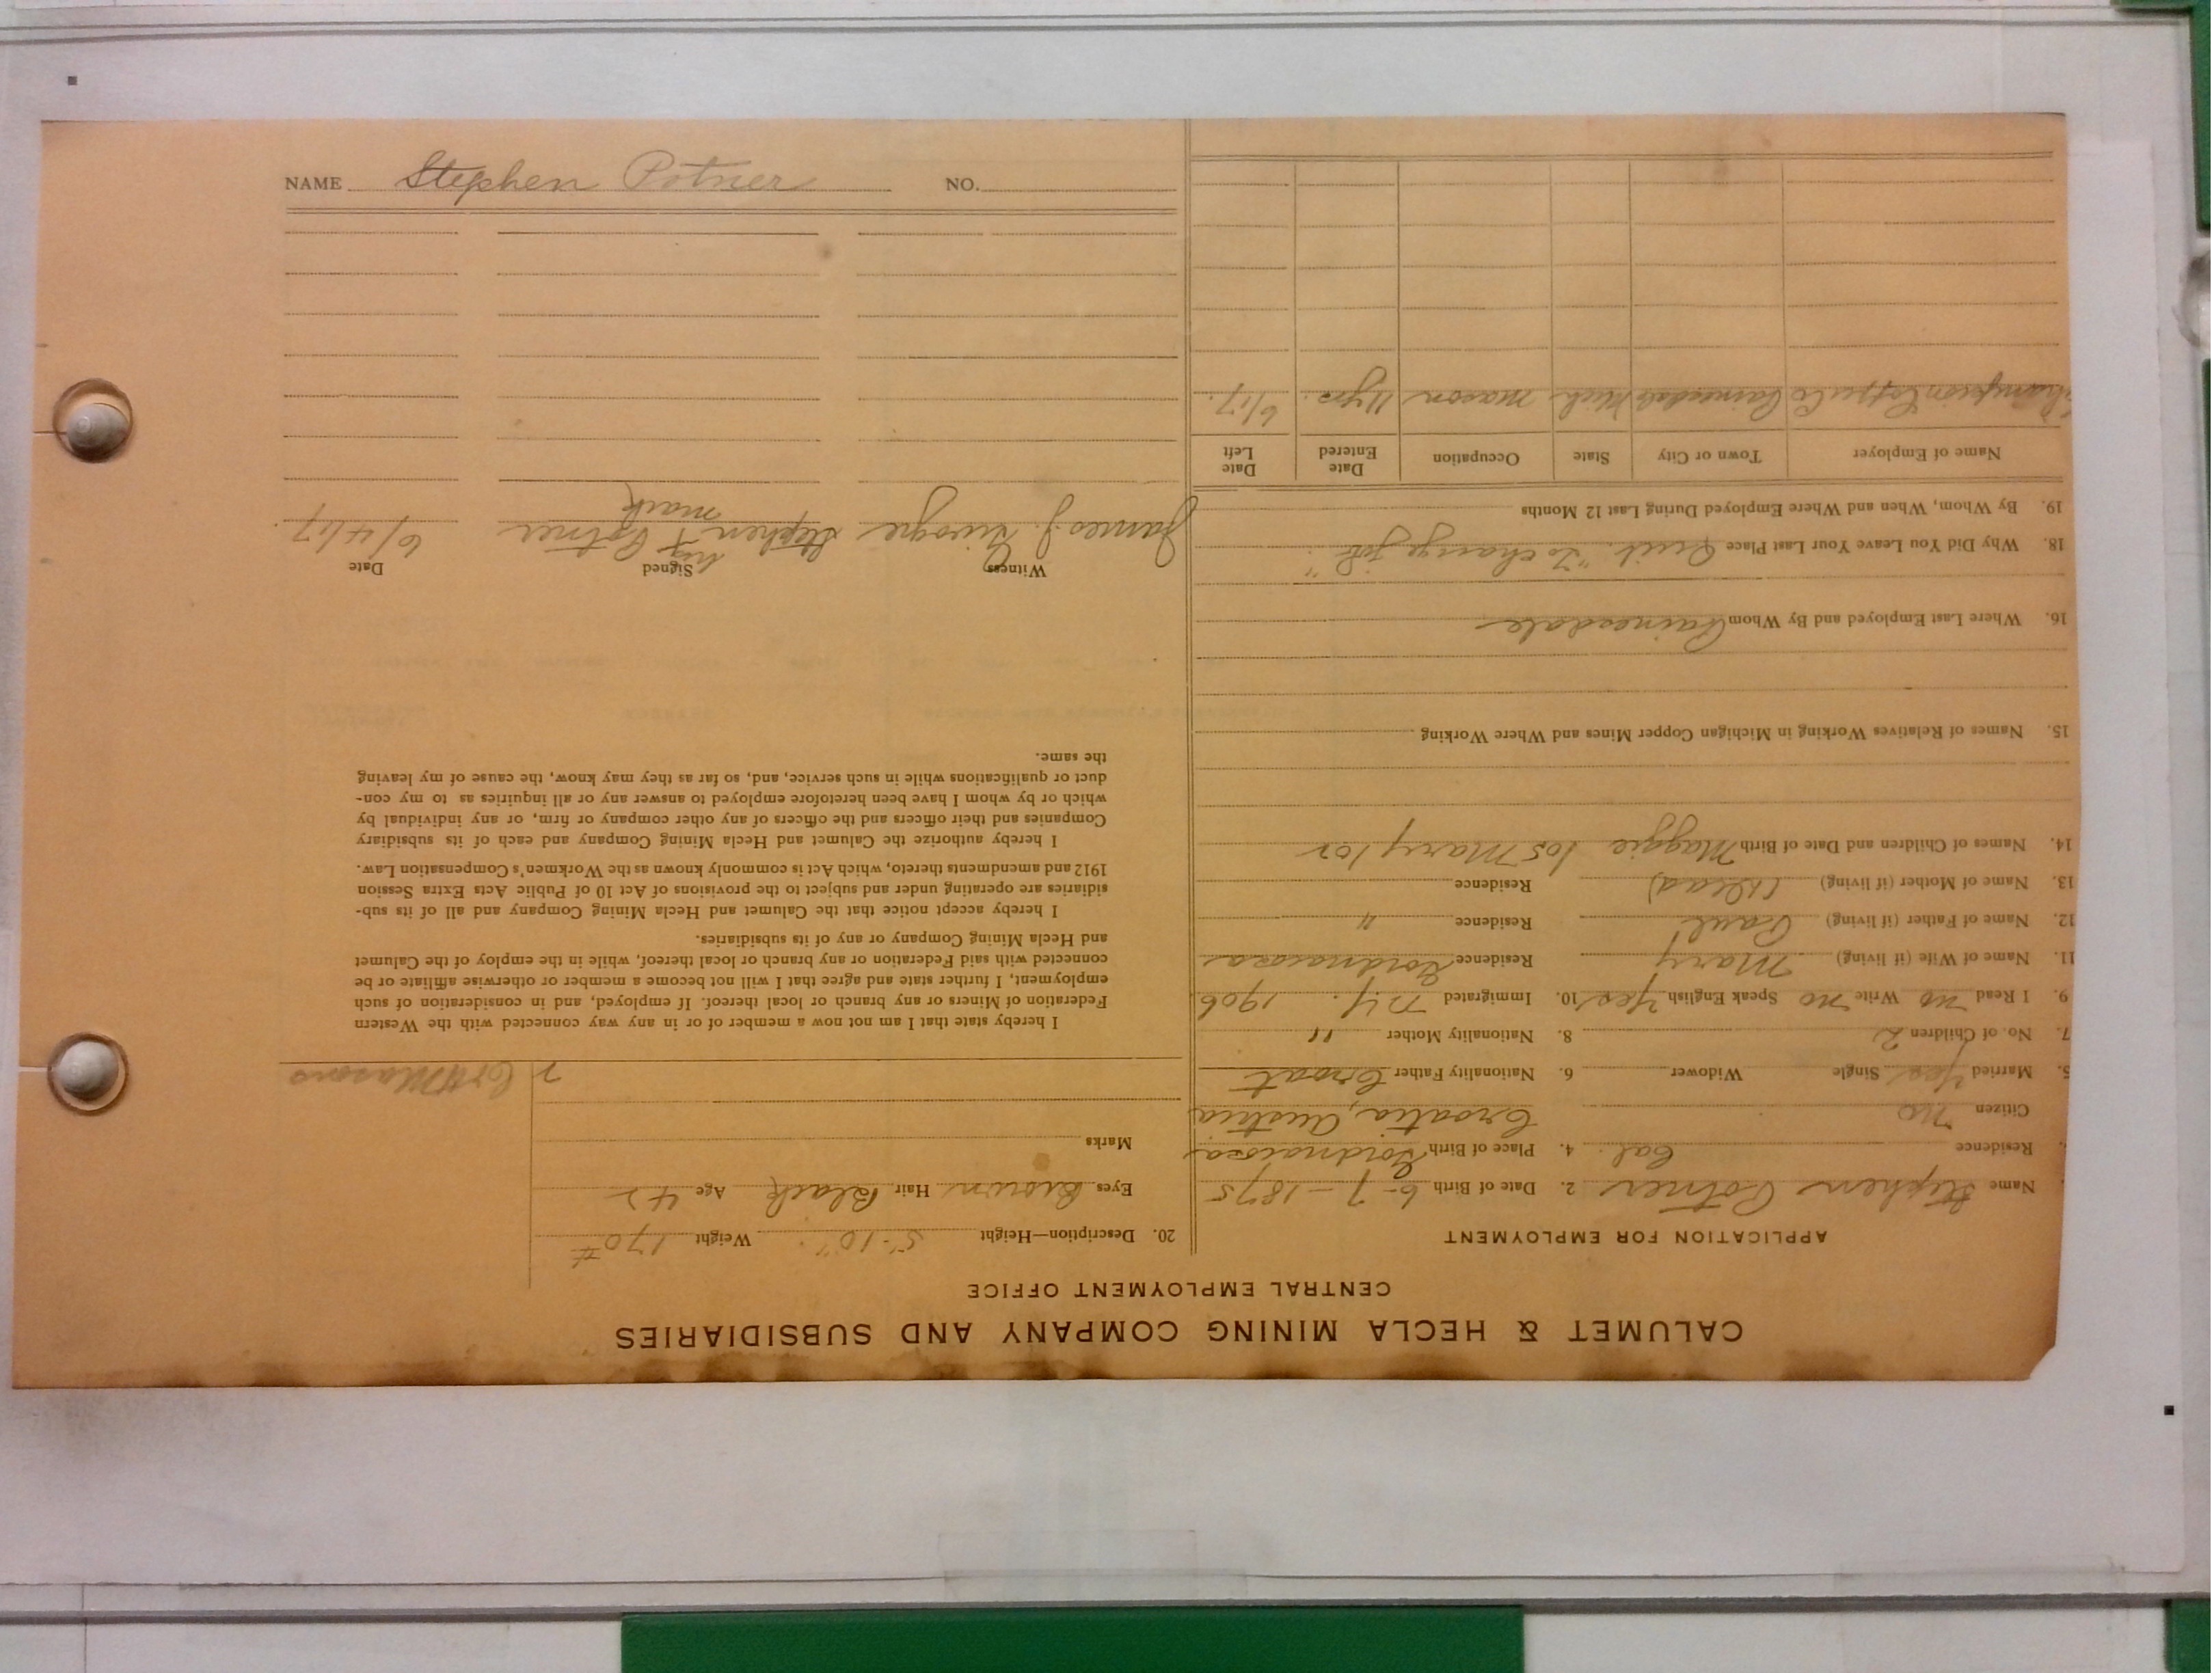 CALUMET & HECLA MINING COMPANY AND SUBSIDIARIES
CENTRAL EMPLOYMENT OFFICE
APPLICATION FOR EMPLOYMENT
Name Stephen Potner 2. Date of Birth 6-7-1875
Residence Cal. 4. Place of Birth
Croatia, Austria
Citizen no
5. Married Yes Single Widower 6. Nationality Father Croat
7. No. of Children 2 8. Nationality Mother "
9. I Read no Write no Speak English Yes 10. Immigrated N.Y. 1906
11. Name of Wife (if living) Mary Residence
12. Name of Father (if living) Paul Residence "
13. Name of Mother (if living) (Dead) Residence
14. Names of Children and Date of Birth Maggie '05 Mary '02
15. Names of Relatives Working in Michigan Copper Mines and Where Working
16. Where Last Employed and By Whom Painesdale
18. Why Did You Leave Your Last Place Quit. "To change job"
19. By Whom, When and Where Employed During Last 12 Months
Name of Employer Town or City State Occupation Date Entered Date Left
Champion Copper Co Painesdale Mich mason 11 yrs. 6/17.
20. Description—Height 5'-10". Weight 170#
Eyes Brown Hair Black Age 42
Marks
C & H Masons
I hereby state that I am not now a member of or in any way connected with the Western
Federation of Miners or any branch or local thereof. If employed, and in consideration of such
employment, I further state and agree that I will not become a member or otherwise affiliate or be
connected with said Federation or any branch or local thereof, while in the employ of the Calumet
and Hecla Mining Company or any of its subsidiaries.
I hereby accept notice that the Calumet and Hecla Mining Company and all of its sub-
sidiaries are operating under and subject to the provisions of Act 10 of Public Acts Extra Session
1912 and amendments thereto, which Act is commonly known as the Workmen's Compensation Law.
I hereby authorize the Calumet and Hecla Mining Company and each of its subsidiary
Companies and their officers and the officers of any other company or firm, or any individual by
which or by whom I have been heretofore employed to answer any or all inquiries as to my con-
duct or qualifications while in such service, and, so far as they may know, the cause of my leaving
the same.
Witness Signed Date
his
James J. Stephen + Potner 6/4/17.
mark
NAME Stephen Potner NO.